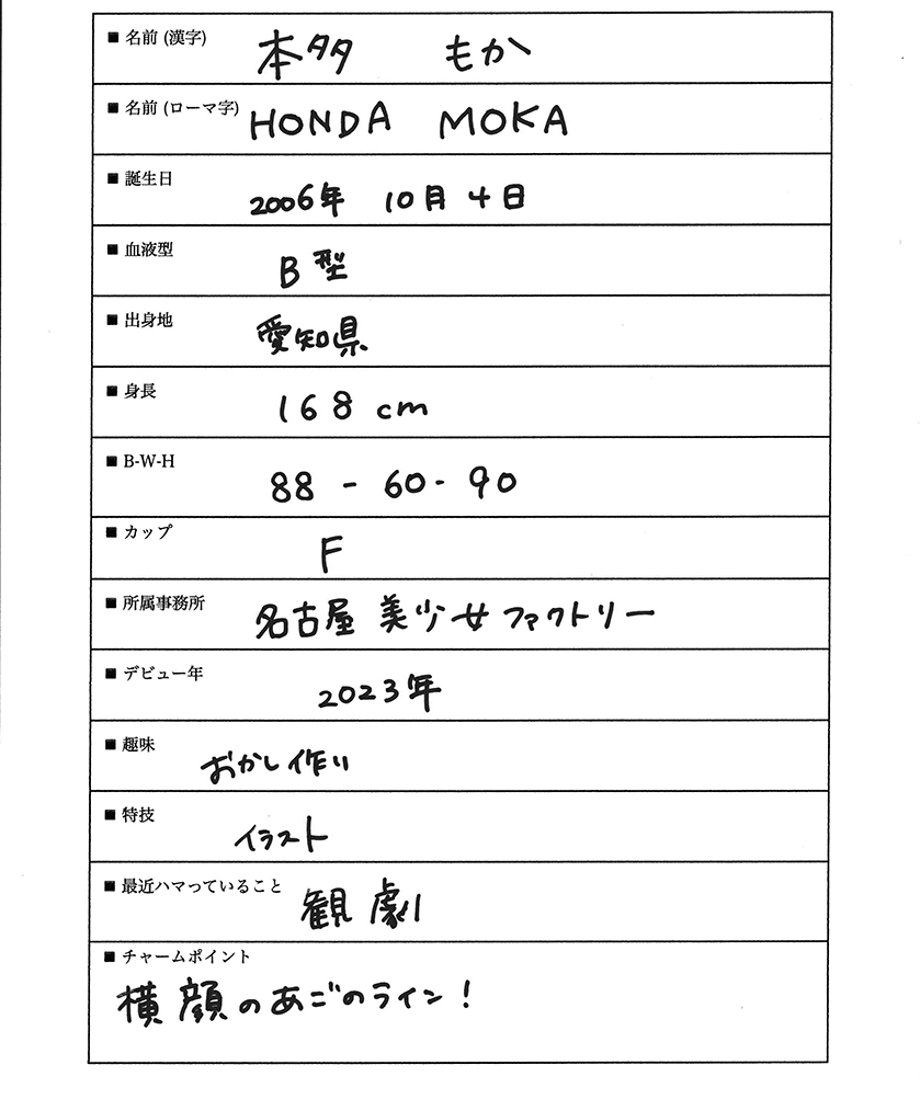 ■ 名前 (漢字) 本多 もか
■ 名前 (ローマ字) HONDA MOKA
■ 誕生日 2006年 10月 4日
■ 血液型 B型
■ 出身地 愛知県
■ 身長 168 cm
■ B-W-H 88 - 60 - 90
■ カップ F
■ 所属事務所 名古屋 美少女ファクトリー
■ デビュー年 2023年
■ 趣味 おかし作り
■ 特技 イラスト
■ 最近ハマっていること 観劇
■ チャームポイント
横顔のあごのライン!